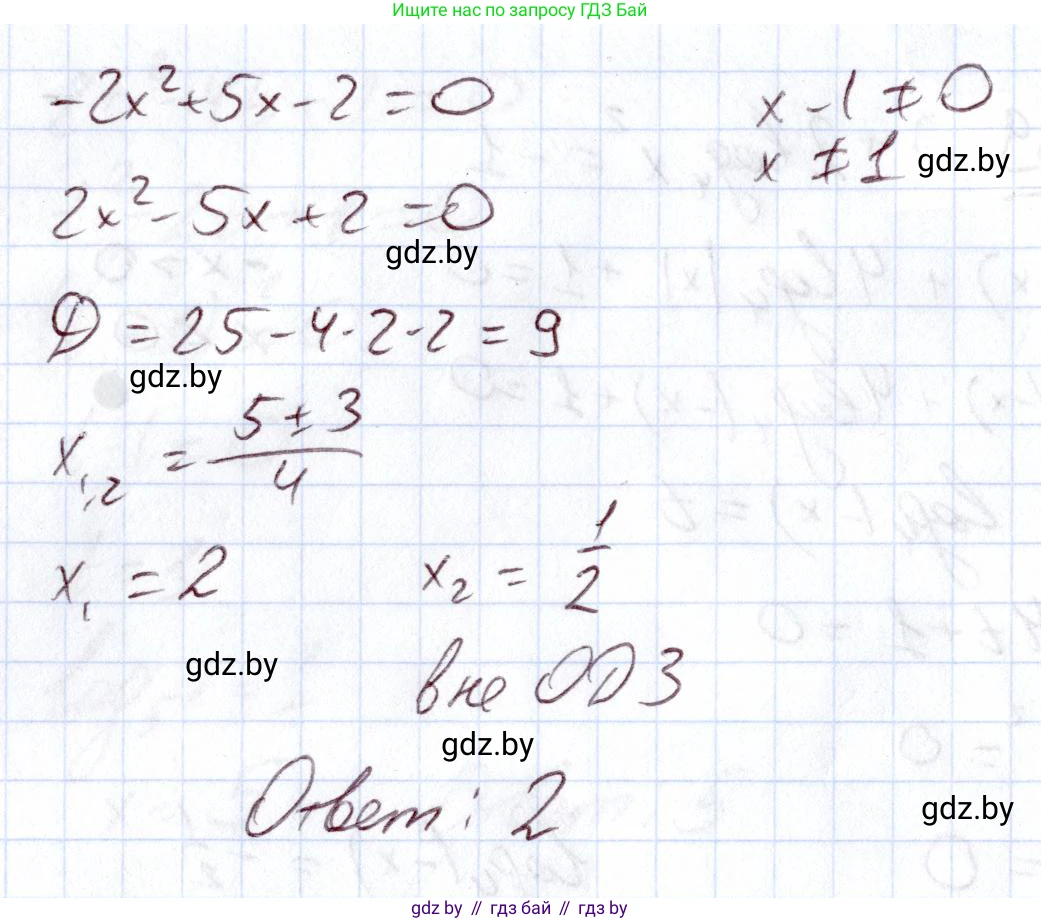 Ищите нас по запросу ГДЗ Бай
-2x²+5x-2=0
x-1≠0
x≠1
gdz.by
2x²-5x+2=0
gdz.by
D=25-4·2·2=9
gdz.by
x₁,₂ = (5±3)/4
x₁ = 2
x₂ = 1/2
gdz.by
вне ОДЗ
gdz.by
Ответ: 2
gdz.by
gdz.by // гдз бай // гдз by